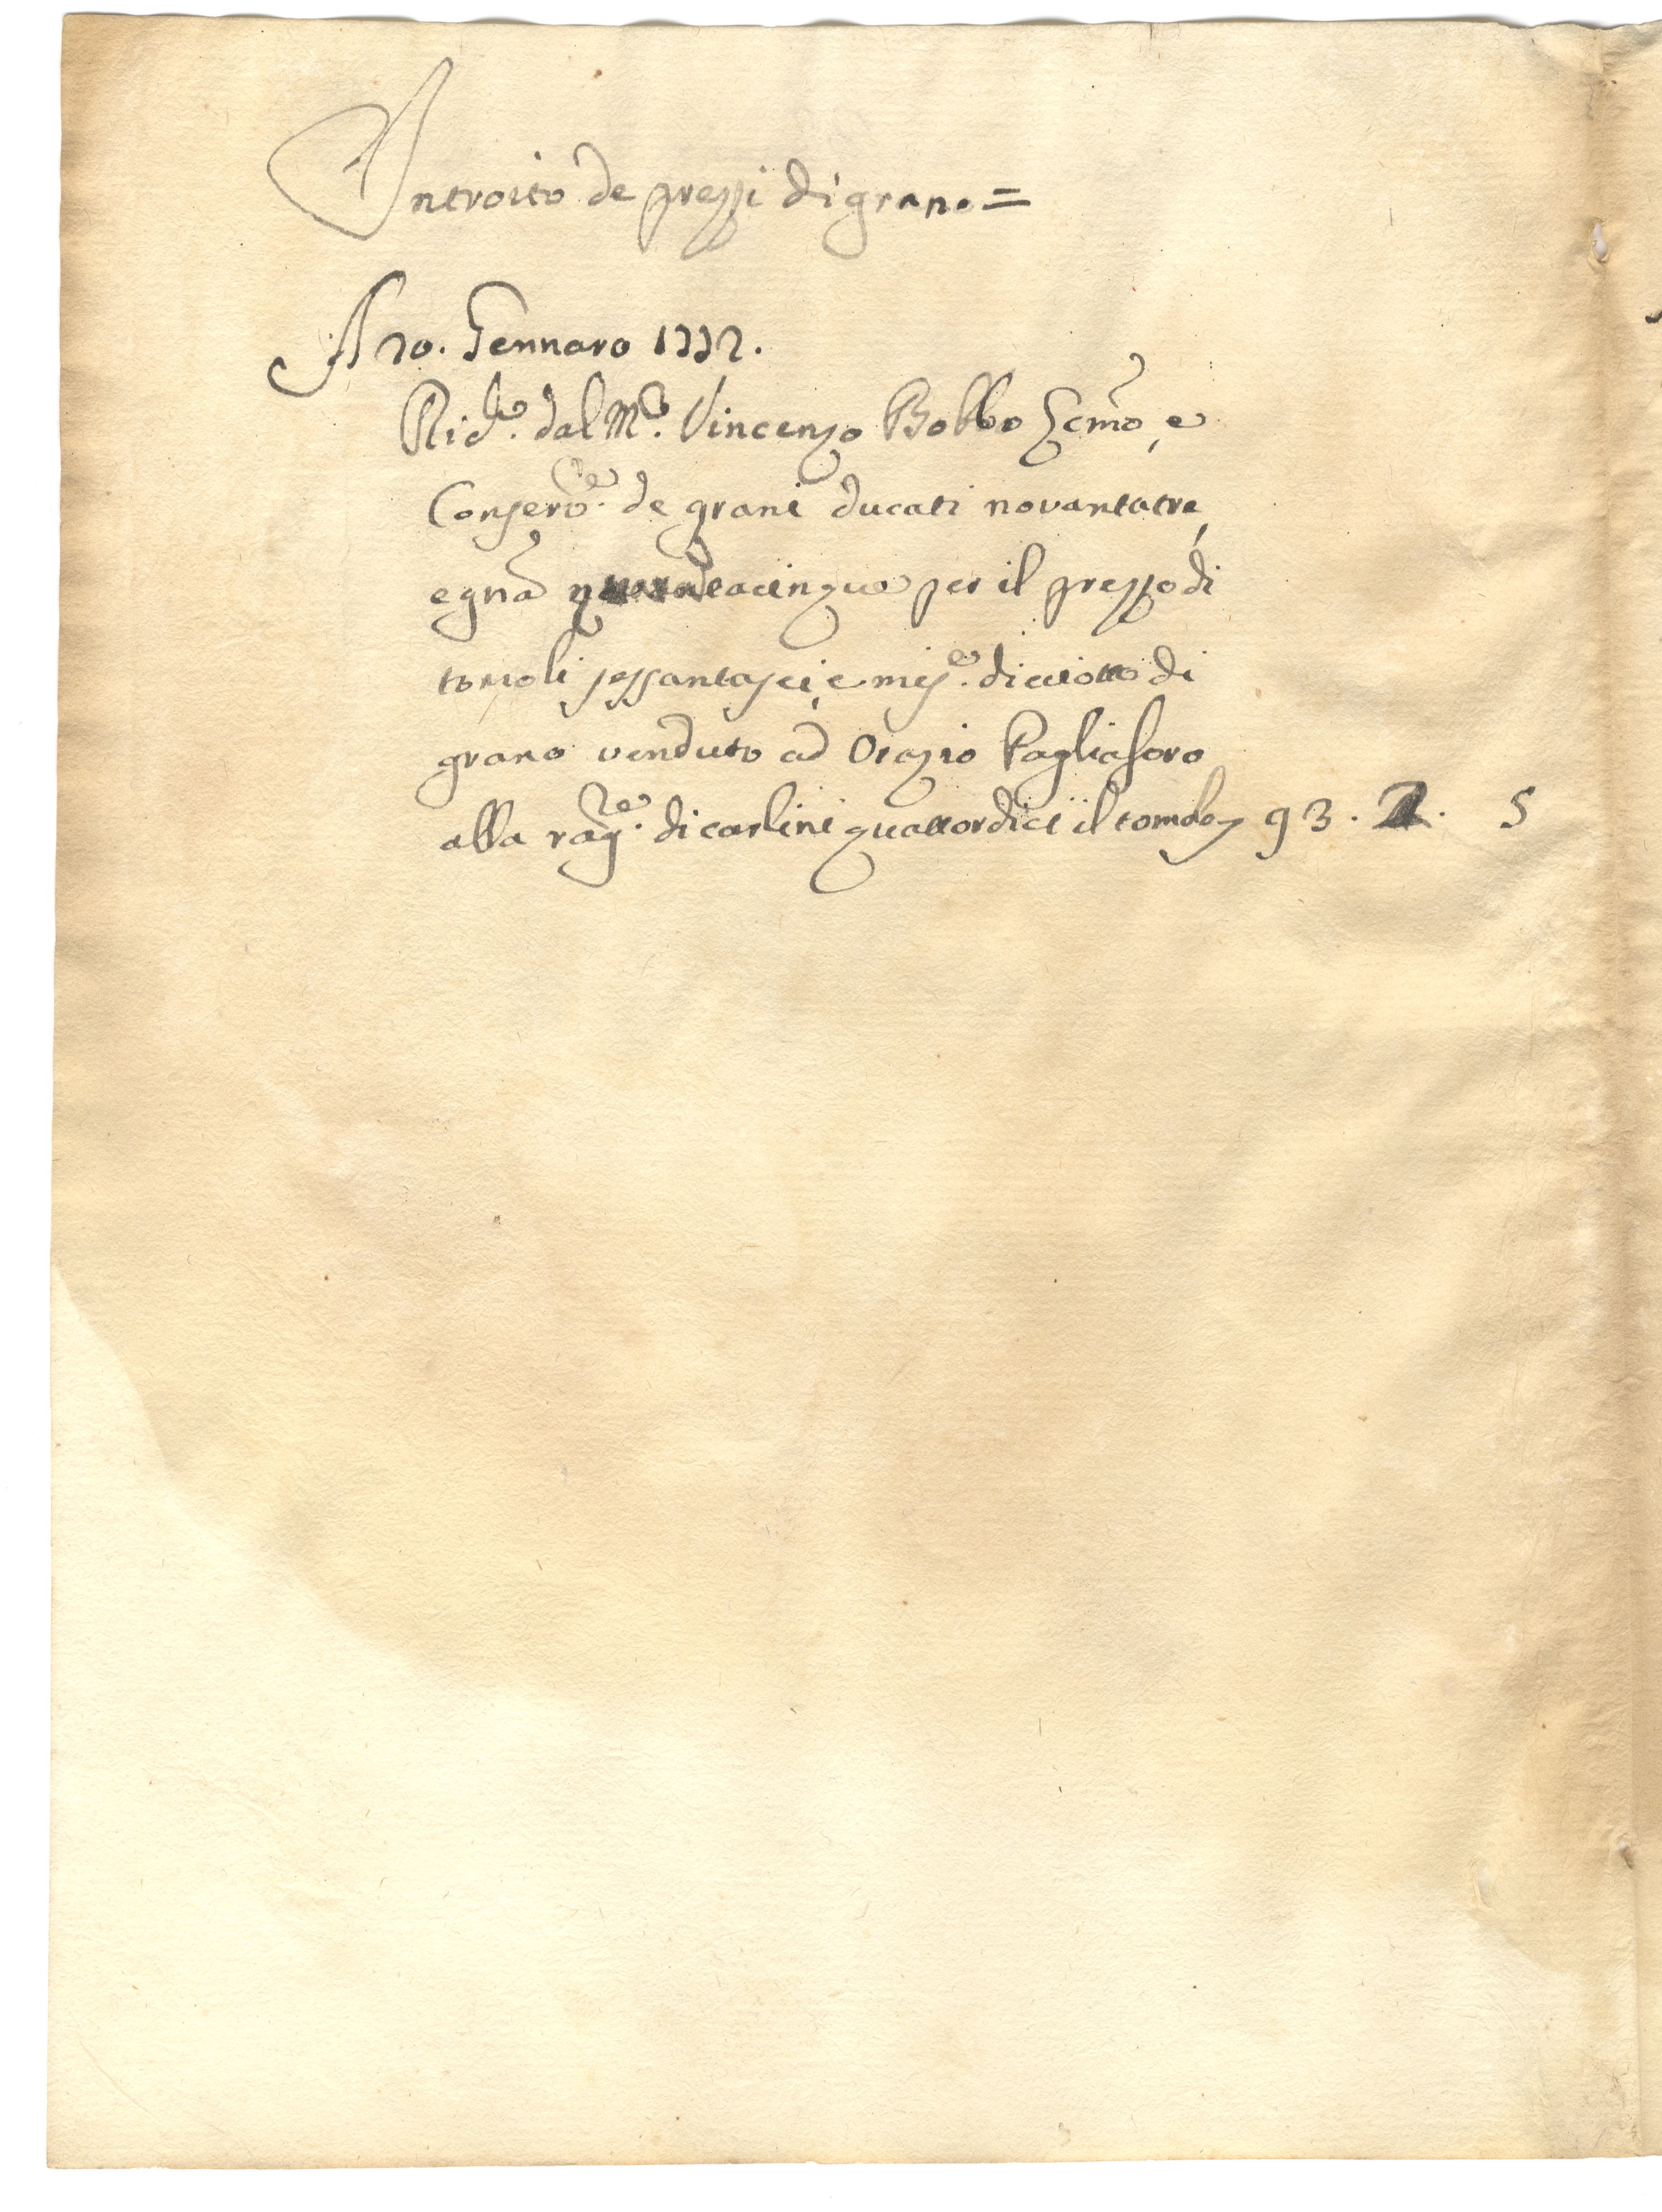 Introito de prezzi di grano =
A 20. Gennaro 1772.
Dal M.co Vincenzo Bobbo e
Conserv.re de grani ducati novantatre,
e gnā quarantacinque per il prezzo di
tomoli sessantasei, e mis.e dieciotto di
grano venduto ad Orazio Pagliaforo
alla rag.ne di carlini quattordici il tomolo 93. 2. 5